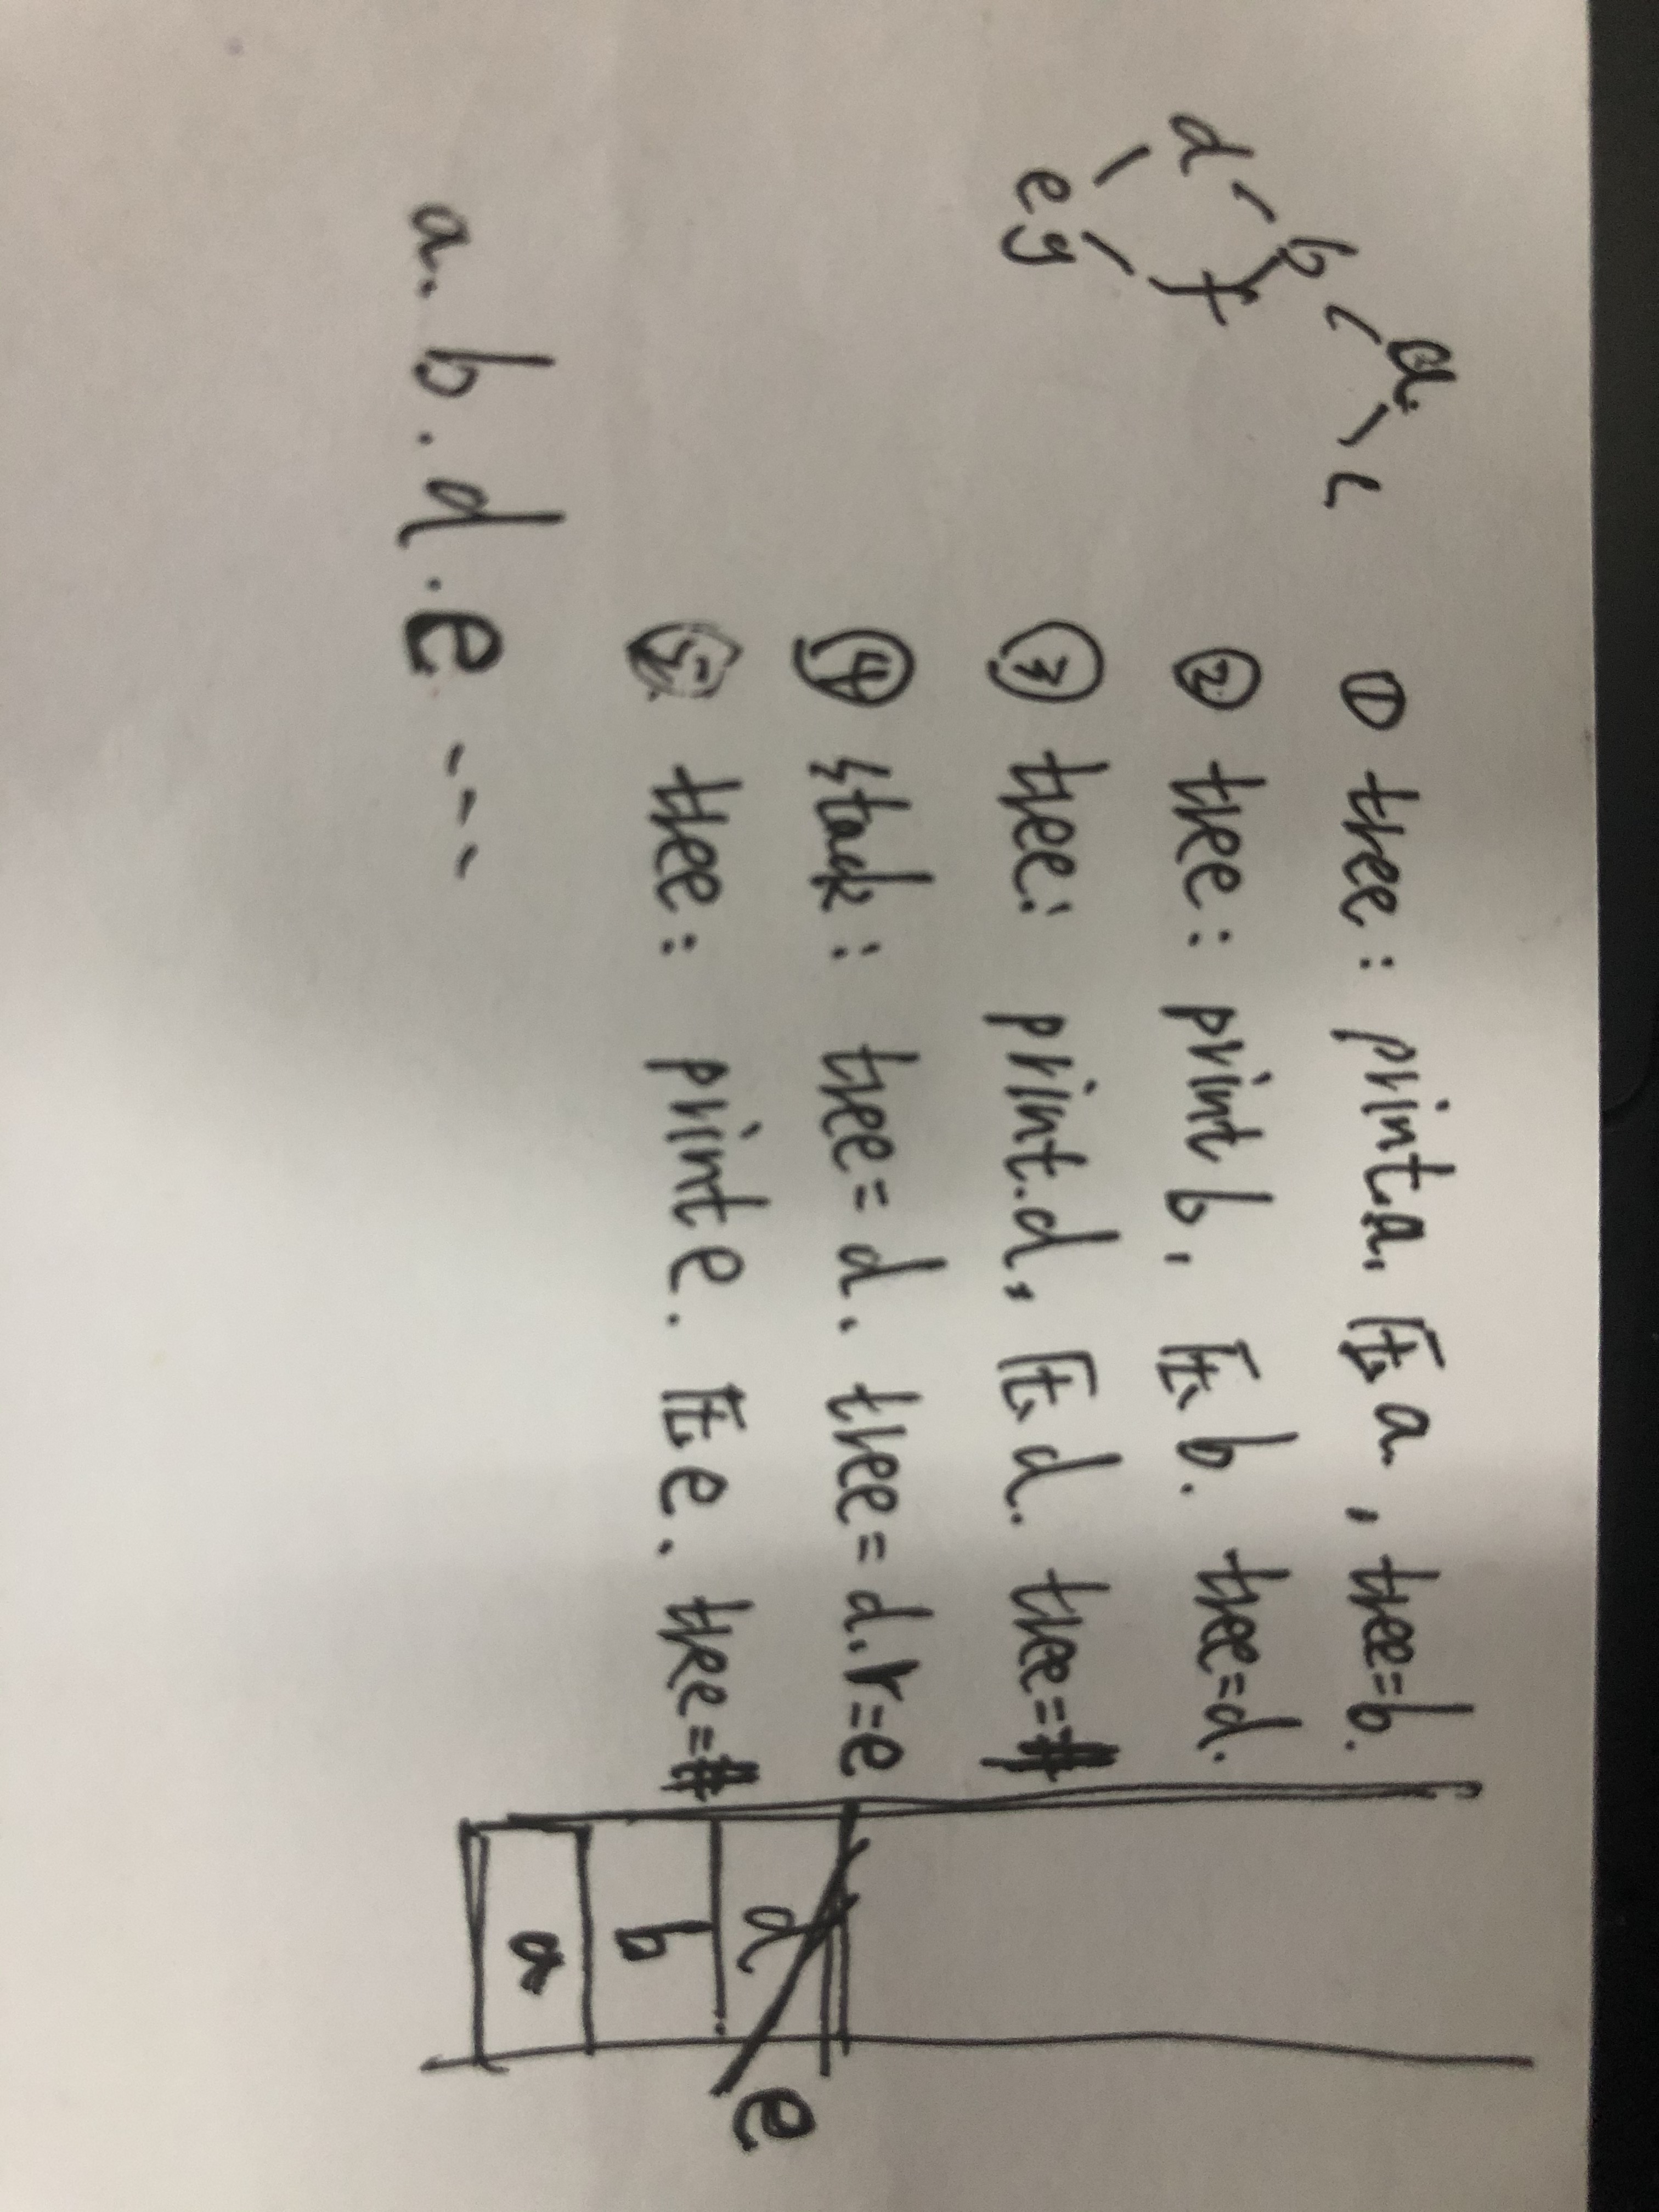 a
b c
d f
e g
① tree: print a. 压 a, tree=b.
② tree: print b, 压 b. tree=d.
③ tree: print.d, 压 d. tree=#
④ stack: tree=d. tree=d.r=e
⑤ tree: print e. 压 e. tree=#
d e
b
a
a. b. d. e ---